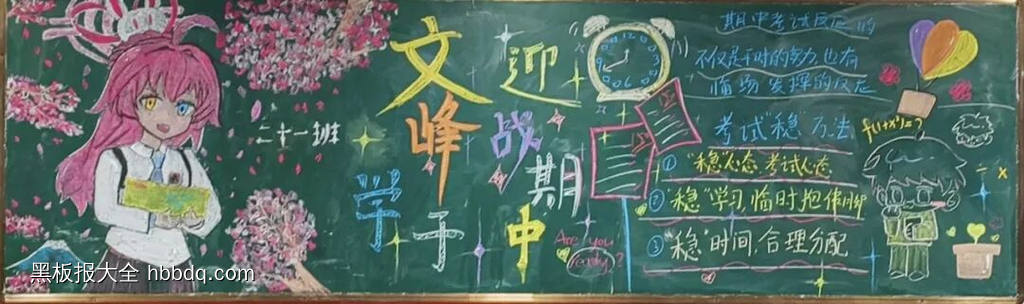 二十一班
文峰
学子
迎战
期中
Are you
ready?
期中考试反应的
不仅是平时的努力,也有
临场发挥的反应
考试"稳"方法
①"稳"心态 考试心态
②"稳"学习 临时抱佛脚
③"稳"时间 合理分配
÷ x
黑板报大全 hbbdq.com